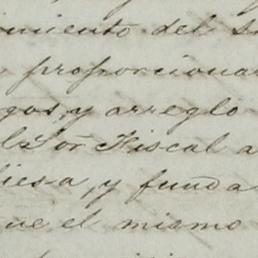 omiento del S
proporciona
gos, y arreglo
l Sor Fiscal a
iesa, y funda
ue el mismo